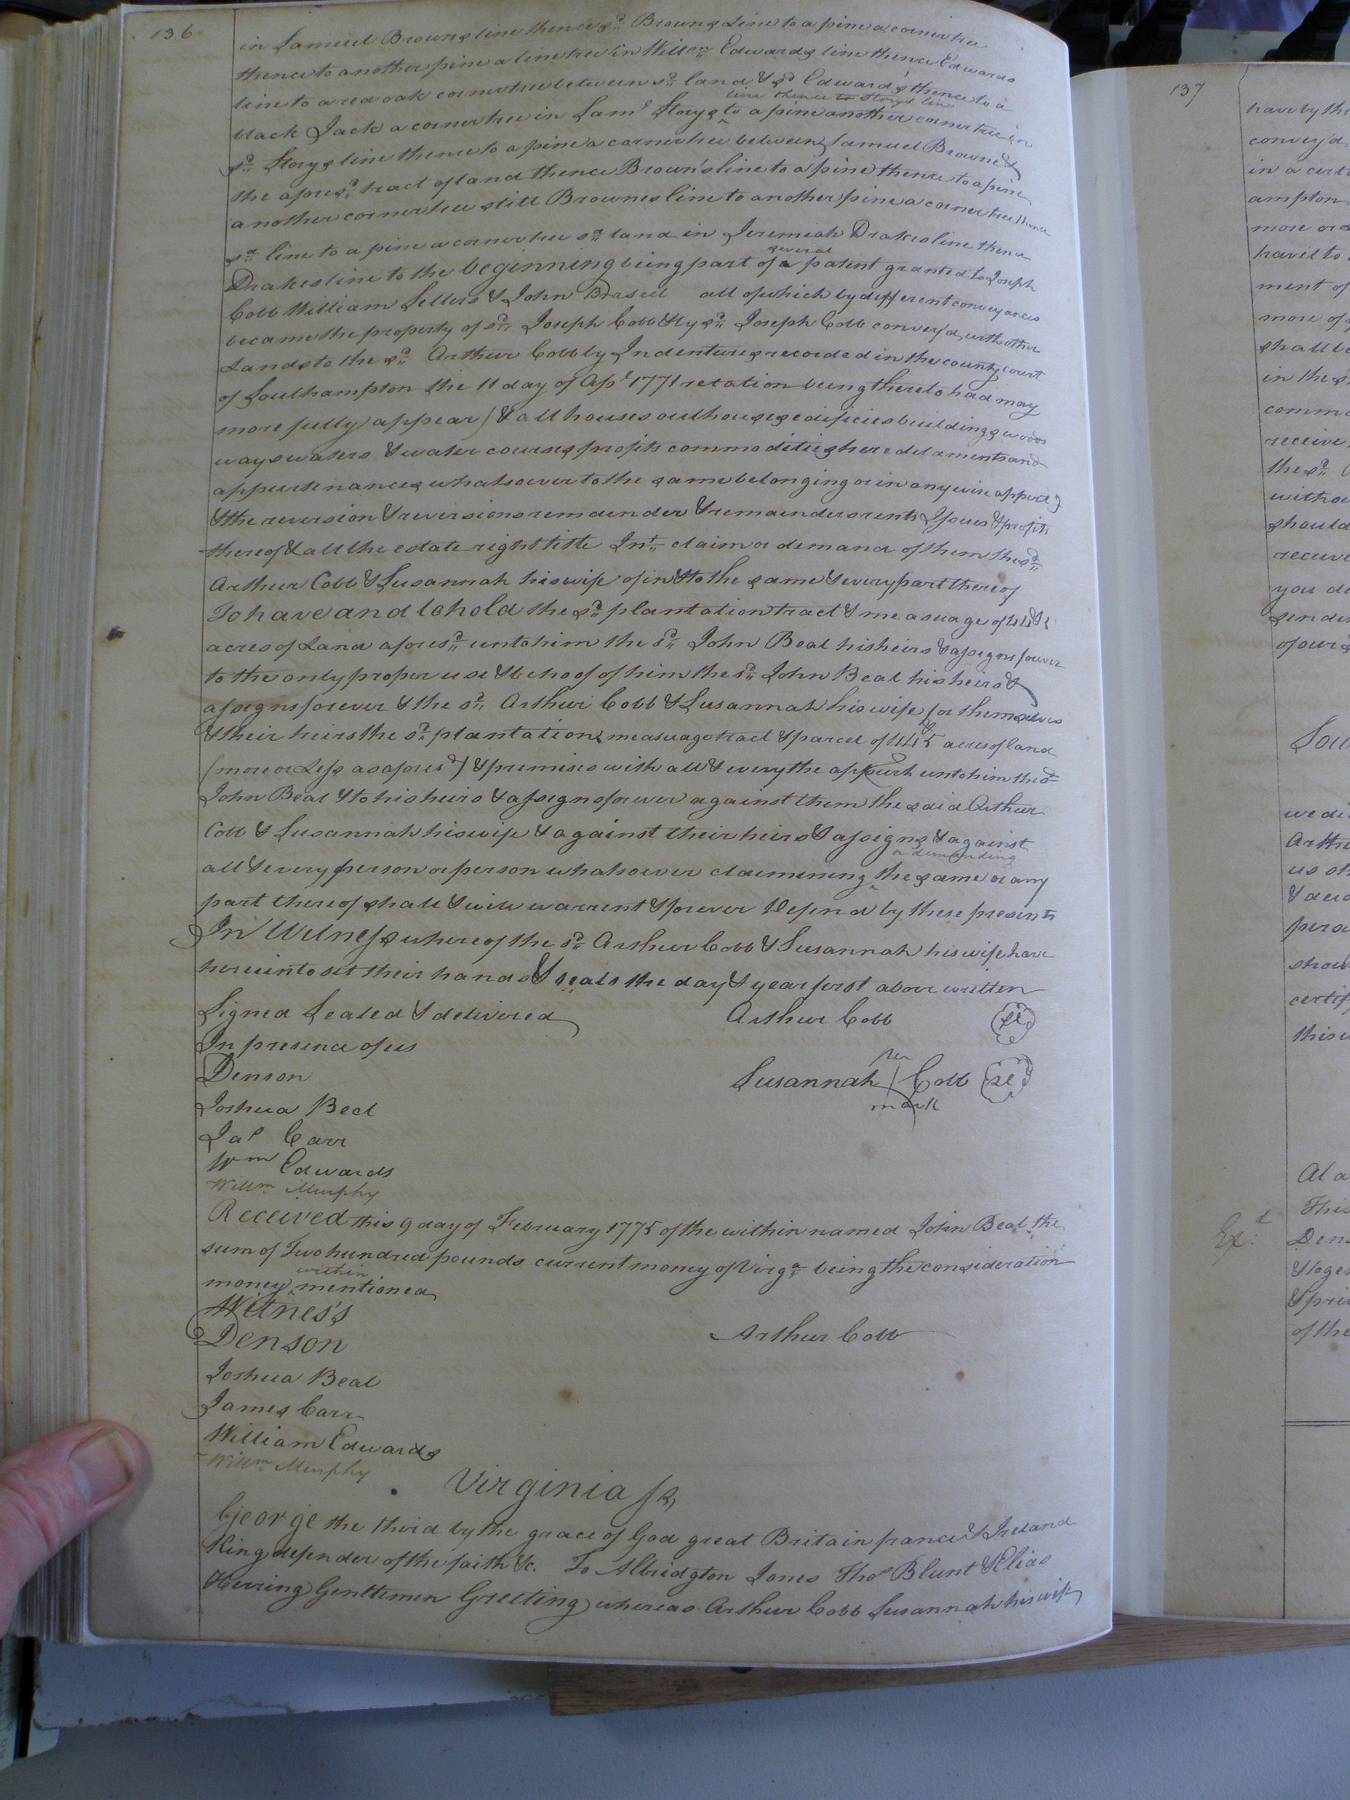 136
in Samuel Browns line thence sd. Browns Line to a pine a corner tree
thence to another pine a line tree in Willm. Edwards line thence Edwards
line to a red oak corner tree between sd. land & sd. Edwards thence to a
line thence to Storys line
black Jack a corner tree in Saml. Storys to a pine another corner tree in
sd. Storys line thence to a pine a corner tree between Samuel Browns &
the aforesd. tract of land thence Brown's line to a pine thence to a pine
another corner tree still Brownes line to another pine a corner tree thence
sd. line to a pine a corner tree sd. land in Jeremiah Drakes line thence
several
Drakes line to the beginning being part of a patent granted to Joseph
Cobb William Sellers & John Braseel all of which by different conveyances
became the property of sd. Joseph Cobb & by sd. Joseph Cobb convey'd with other
Lands to the sd. Arthur Cobb by Indentures recorded in the county court
of Southampton the 11 day of Apl 1771 relation being thereto had may
more fully appear) & all houses outhouses edificies buildings woods
ways waters & water courses profits commodities heredetaments and
appurtenances whatsoever to the same belonging or in any wise apperg
& the reversion & reversions remdender & remainders rents Issues & profits
thereof & all the estate right title Int. claim or demand of them the sd.
Arthur Cobb & Susannah his wife of in & to the same & every part there of
To have and to hold the sd. plantation tract & measuage of 445
acres of Land aforesd. unto him the sd. John Beal his heirs & assigns forever
to the only proper use & behoof of him the sd. John Beal his heirs &
assigns forever & the sd. Arthur Cobb & Susannah his wife for themselves
& their heirs the sd. plantation measuage tract & parcel of 445 acres of land
(more or Less as aforesd) & premises with all & every the appurts unto him the sd.
John Beal & to his heirs & assigns forever against them the said Arthur
Cobb & Susannah his wife & against their heirs & assigns & against
or demanding
all & every person or person whatsoever claimening the same or any
part there of shall & will warrent & forever Defend by these presents
In Witness where of the sd. Arthur Cobb & Susannah his wife have
hereunto set their hands & seals the day & year first above written
Signed Sealed & delivered Arthur Cobb Sl
In presence of us
her
Denson Susannah Cobb Sl
mark
Joshua Beal
Jas Carr
Wm Edwards
Willm Murphy
Received this 9 day of February 1775 of the within named John Beal the
sum of Two hundred pounds current money of Virga. being the consideration
within
money mentioned
Witness's
Denson Arthur Cobb
Joshua Beal
James Carr
William Edwards
Willm Murphy
Virginia Ss
George the third by the grace of God great Britain france & Ireland
King defender of the faith &c. To Albridgton Jones Thos Blunt & Elias
Herring Gentlemen Greeting whereas Arthur Cobb Susannah his wife
137
have by the
convey'd
in a cert
ampton
more or
hav it to
ment of
more of
shall be
in the
comm
receive
the sd.
witho
should
receive
you di
sender
of our
Sou
we di
Arth
us sh
& deli
perso
shou
certif
this
At a
This
Ext. Dens
& toge
& pri
of the